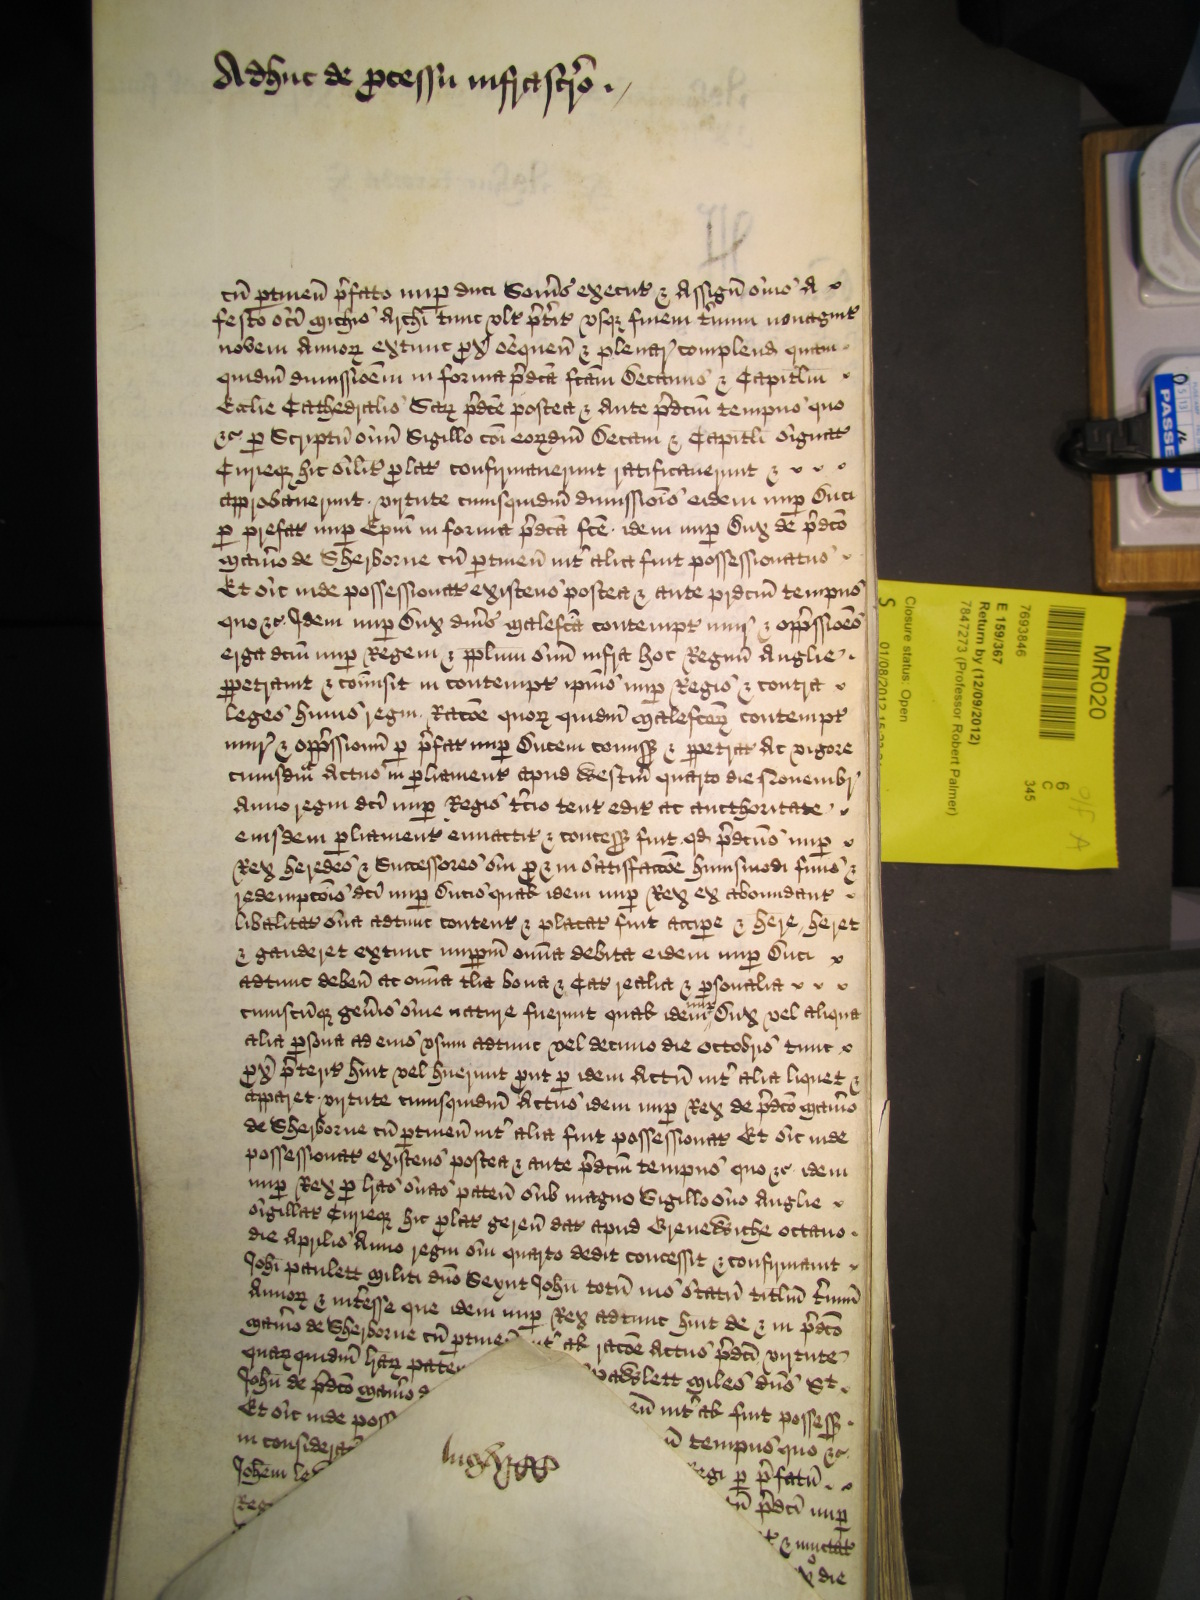 Adhuc de p̱cessu infrascr̃o .
cũ ptineñ p̃fato nup duci Som̃s execut̃ & Assigñ suis A
festo s̃ci Mich̃is Arch̃i tunc ult̃ p̃t̃it̃ usq̃ finem t̃mini nonagint̃
novem Annoꝝ extunc prox̃ seq̃ueñ & plenar̃ complend quam
quidm̃ dimissioẽm in forma p̃dc̃a fc̃am Decanus & Capitlm̃
Ecclie Cathedralis Saꝝ p̃dc̃e postea & ante p̃dcm̃ tempus quo
&c̃ p Scriptũ suũ Sigillo cõi eoꝝdm̃ Decani & Capitli signat̃
Curieq̃ hic sil̃it̃ plat̃ confirmaverunt ratificaverunt &
approbaverunt virtute cuiusquidm̃ dimissiõis eidem nup Duci
p prefat̃ nup Ep̃m in forma p̃dc̃a fc̃e idem nup Dux de p̃dc̃o
Mañio de Sherborne cũ ptineñ int̃ alia fuit possessionatus
Et sic inde possessionat̃ existens postea & ante p̃dcm̃ tempus
quo &c̃ Idem nup Dux diṽs Malefc̃a contempt̃ iniur̃ & opp̃ssiões
erga dcm̃ nup Regem & pplum suũ infra hoc Regnũ Anglie
ppetravit & com̃isit in contempt̃ ip̃ius nup Regis & contra
leges huius regni Racõe quoꝝ quidm̃ Malefcoꝝ contempt̃
iniur̃ & opp̃ssionũ p p̃fat̃ nup Ducem comiss̃ & ppetrat̃ Ac vigore
cuiusdm̃ Actus in pliament̃ apud Westm̃ quarto die Novembr̃
Anno regni dc̃i nup Regis t̃cio tent̃ edit̃ ac aucthoritate
eiusdem pliament̃ ennactit̃ & concess̃ fuit qd̃ p̃dcũs nup
Rex heredes & Successores sui p & in satisfaccõe huiusmodi finis &
redempcõis dc̃i nup Ducis quat̃ idem nup Rex ex aboundant̃
libalitat̃ sua adtunc content̃ & placat̃ fuit accipe & h̃ere h̃eret
& gauderet extunc imppm̃ om̃ia debita eidem nup Duci
adtunc debeñ ac om̃ia t̃lia bona & Cat̃ realia & psonalia
cuiuscũq̃ gen̄is sive nature fuerunt que idem nup Dux vel aliqua
alia psona ad eius usum adtunc vel decimo die Octobris tunc
prox̃ p̃terit̃ h̃uit vel h̃uerunt put p idem Actũ int̃ alia liquet &
apparet virtute cuiusquidm̃ Actus idem nup Rex de p̃dc̃o Mañio
de Sherborne cũ ptineñ int̃ alia fuit possessionat̃ Et sic inde
possessionat̃ existens postea & ante p̃dcm̃ tempus quo &c̃ idem
nup Rex p l̃ras suas pateñ sub magno Sigillo suo Anglie
sigillat̃ Curieq̃ hic plat̃ gereñ dat̃ apud Grenewiche octavo
die Aprilis Anno regni sui quarto dedit concessit & confirmavit
Joh̃i Paulett Militi dño Seynt John totũ ius statũ titlm̃ t̃minũ
Annoꝝ & int̃esse que idem nup Rex adtunc h̃uit de & in p̃dc̃o
Mañio de Sherborne cũ ptineñ int̃ al̃ racõe Actus p̃dc̃i virtute
quaꝝ quidm̃ l̃raꝝ pateñ Pawlett Miles dñs St.
John de p̃dc̃o Mañio d eñ int̃ al̃ fuit possess̃
Et sic inde poss ũ tempus quo &c̃
in considerac̃ Regi p p̃fatũ
Joh̃em ũ p̃dc̃i nup
Reg & mutat̃
hughes die
MR020
6
C
345
O/F A
7693846
E 159/367
Return by (12/09/2012)
7847273 (Professor Robert Palmer)
Closure status: Open
S 01/08/2012
PASSE